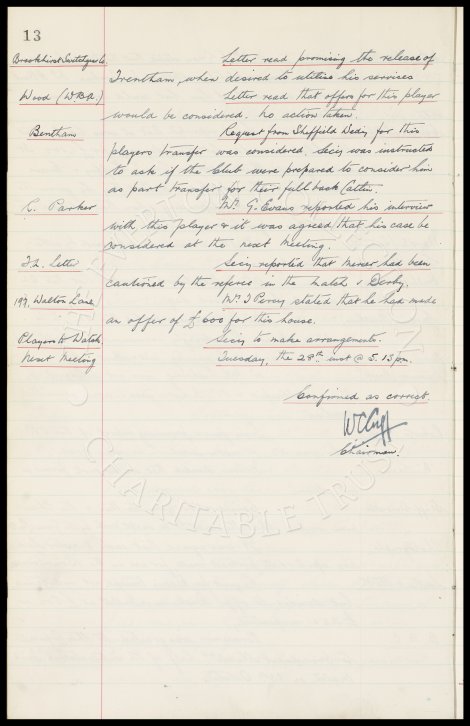 13
Brookhirst Switchgear Co. Letter read promising the release of
Trentham, when desired to utilise his services
Wood (W.B.A.) Letter read that offers for this player
would be considered. No action taken.
Bentham Request from Sheffield Wedy for this
players transfer was considered. Secy was instructed
to ask if the Club were prepared to consider him
as part transfer for their full back Catlin.
R. Parker Mr. G. Evans reported his interview
with this player & it was agreed that his case be
considered at the next meeting.
F.L. Letter Secy reported that Mercer had been
cautioned by the referee in the match v Derby.
199, Walton Lane Mr. J Percy stated that he had made
an offer of £600 for this house.
Players to Watch Secy to make arrangements.
Next Meeting Tuesday, the 28th inst @ 5.15pm.
Confirmed as correct
W C Cuff
Chairman!
EVERTON COLLECTION CHARITABLE TRUST